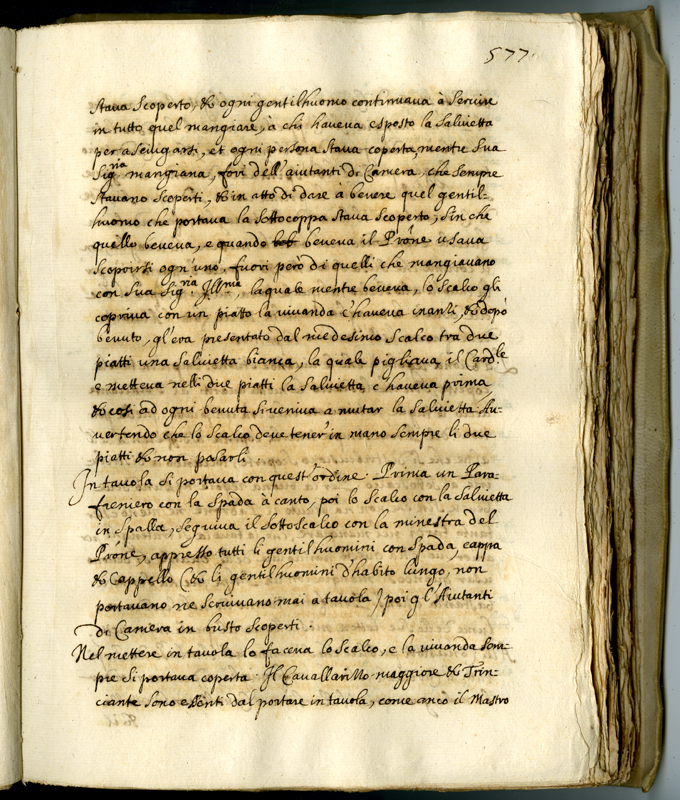 577.
stava scoperto, & ogni gentilhuomo continuava à servire
in tutto quel mangiare, à chi haveva esposto la salvietta
per asciugarsi, et ogni persona stava coperta, mentre sua
Sig.ria mangiava, fori dell'aiutanti di Camera, che sempre
stavano scoperti, & in atto di dare à bevere quel gentil-
huomo che portava la sottocoppa stava scoperto, sin che
quello beveva, e quando beveva il Prône usava
scoprirsi ogn'uno, fuori però di quelli che mangiavano
con sua Sig.ria Ill.ma, laquale mentre beveva, lo scalco gli
copriva con un piatto la vivanda c'haveva inanti, & dopò
bevuto, gl'era presentato dal medesimo scalco tra due
piatti una salvietta bianca, la quale pigliava il Card.le
e metteva nelli due piatti la salvietta c'haveva prima,
& cosi ad ogni bevuta si veniva a mutar la salvietta Au-
vertendo che lo scalco deve tener in mano sempre li due
piatti & non posarli.
In tavola si portava con quest'ordine. Prima un Para-
freniero con la spada à canto, poi lo scalco con la salvietta
in spalla, seguiva il sottoscalco con la minestra del
Prône, appresso tutti li gentilhuomini con spada, cappa
& Cappello (& li gentilhuomini d'habito lungo, non
portavano ne servivano mai a tavola) poi gl'Aiutanti
di Camera in busto scoperti.
Nel mettere in tavola lo faceva lo scalco, e la vivanda sem-
pre si portava coperta. Il Cavallarizzo maggiore & Trin-
ciante sono essenti dal portare in tavola, come anco il Mastro